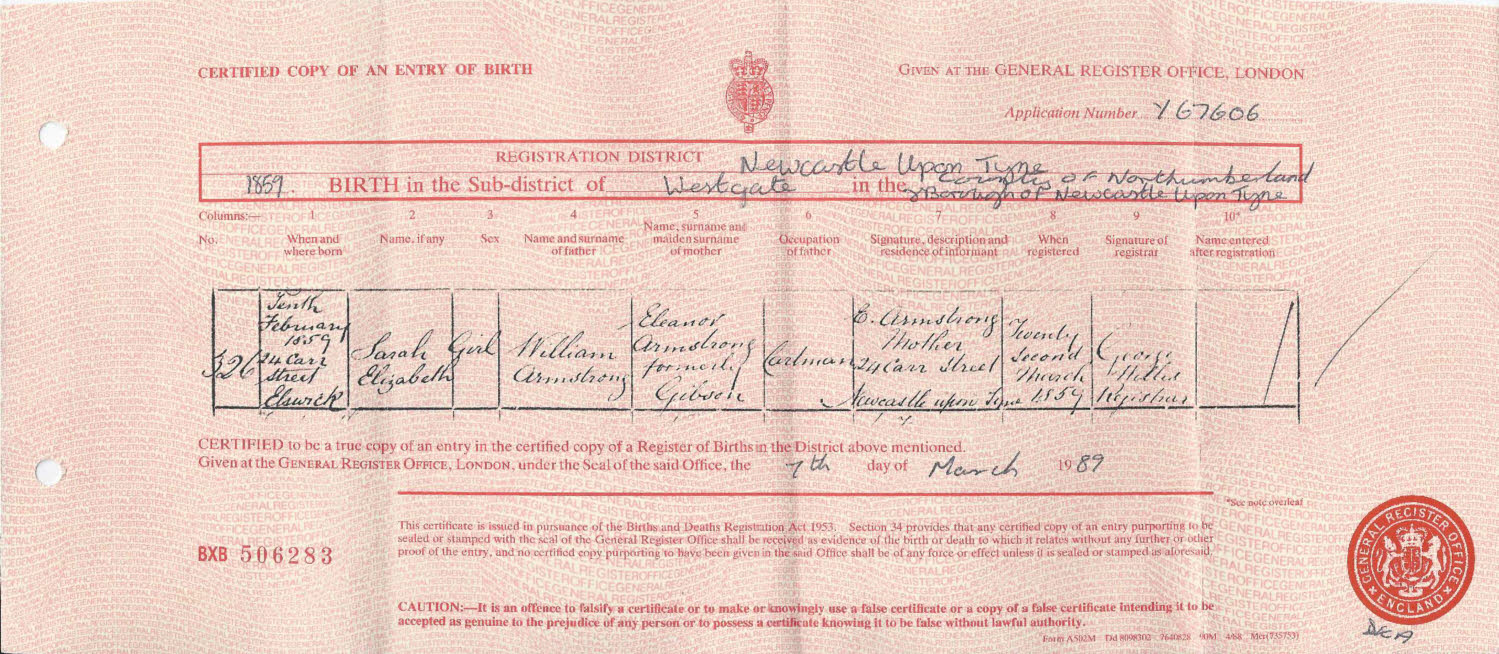 CERTIFIED COPY OF AN ENTRY OF BIRTH
GIVEN AT THE GENERAL REGISTER OFFICE, LONDON
Application Number Y67606
REGISTRATION DISTRICT Newcastle Upon Tyne
1859. BIRTH in the Sub-district of Westgate in the County of Northumberland
& Borough of Newcastle Upon Tyne
Columns:— 1 2 3 4 5 6 7 8 9 10*
No.
When and
where born
Name, if any
Sex
Name and surname
of father
Name, surname and
maiden surname
of mother
Occupation
of father
Signature, description and
residence of informant
When
registered
Signature of
registrar
Name entered
after registration
326
Tenth
February
1859
24 Carr
Street
Elswick
Sarah
Elizabeth
Girl
William
Armstrong
Eleanor
Armstrong
formerly
Gibson
Cartman
E. Armstrong
Mother
24 Carr Street
Newcastle upon Tyne
Twenty
Second
March
1859
George
Registrar
CERTIFIED to be a true copy of an entry in the certified copy of a Register of Births in the District above mentioned.
Given at the GENERAL REGISTER OFFICE, LONDON, under the Seal of the said Office, the 7th day of March 1989
*See note overleaf
This certificate is issued in pursuance of the Births and Deaths Registration Act 1953. Section 34 provides that any certified copy of an entry purporting to be
sealed or stamped with the seal of the General Register Office shall be received as evidence of the birth or death to which it relates without any further or other
proof of the entry, and no certified copy purporting to have been given in the said Office shall be of any force or effect unless it is sealed or stamped as aforesaid.
BXB 506283
CAUTION:—It is an offence to falsify a certificate or to make or knowingly use a false certificate or a copy of a false certificate intending it to be
accepted as genuine to the prejudice of any person or to possess a certificate knowing it to be false without lawful authority.
Form A502M Dd 8098302 7640828 90M 4/88 Mcr(735753)
GENERAL REGISTER OFFICE
ENGLAND